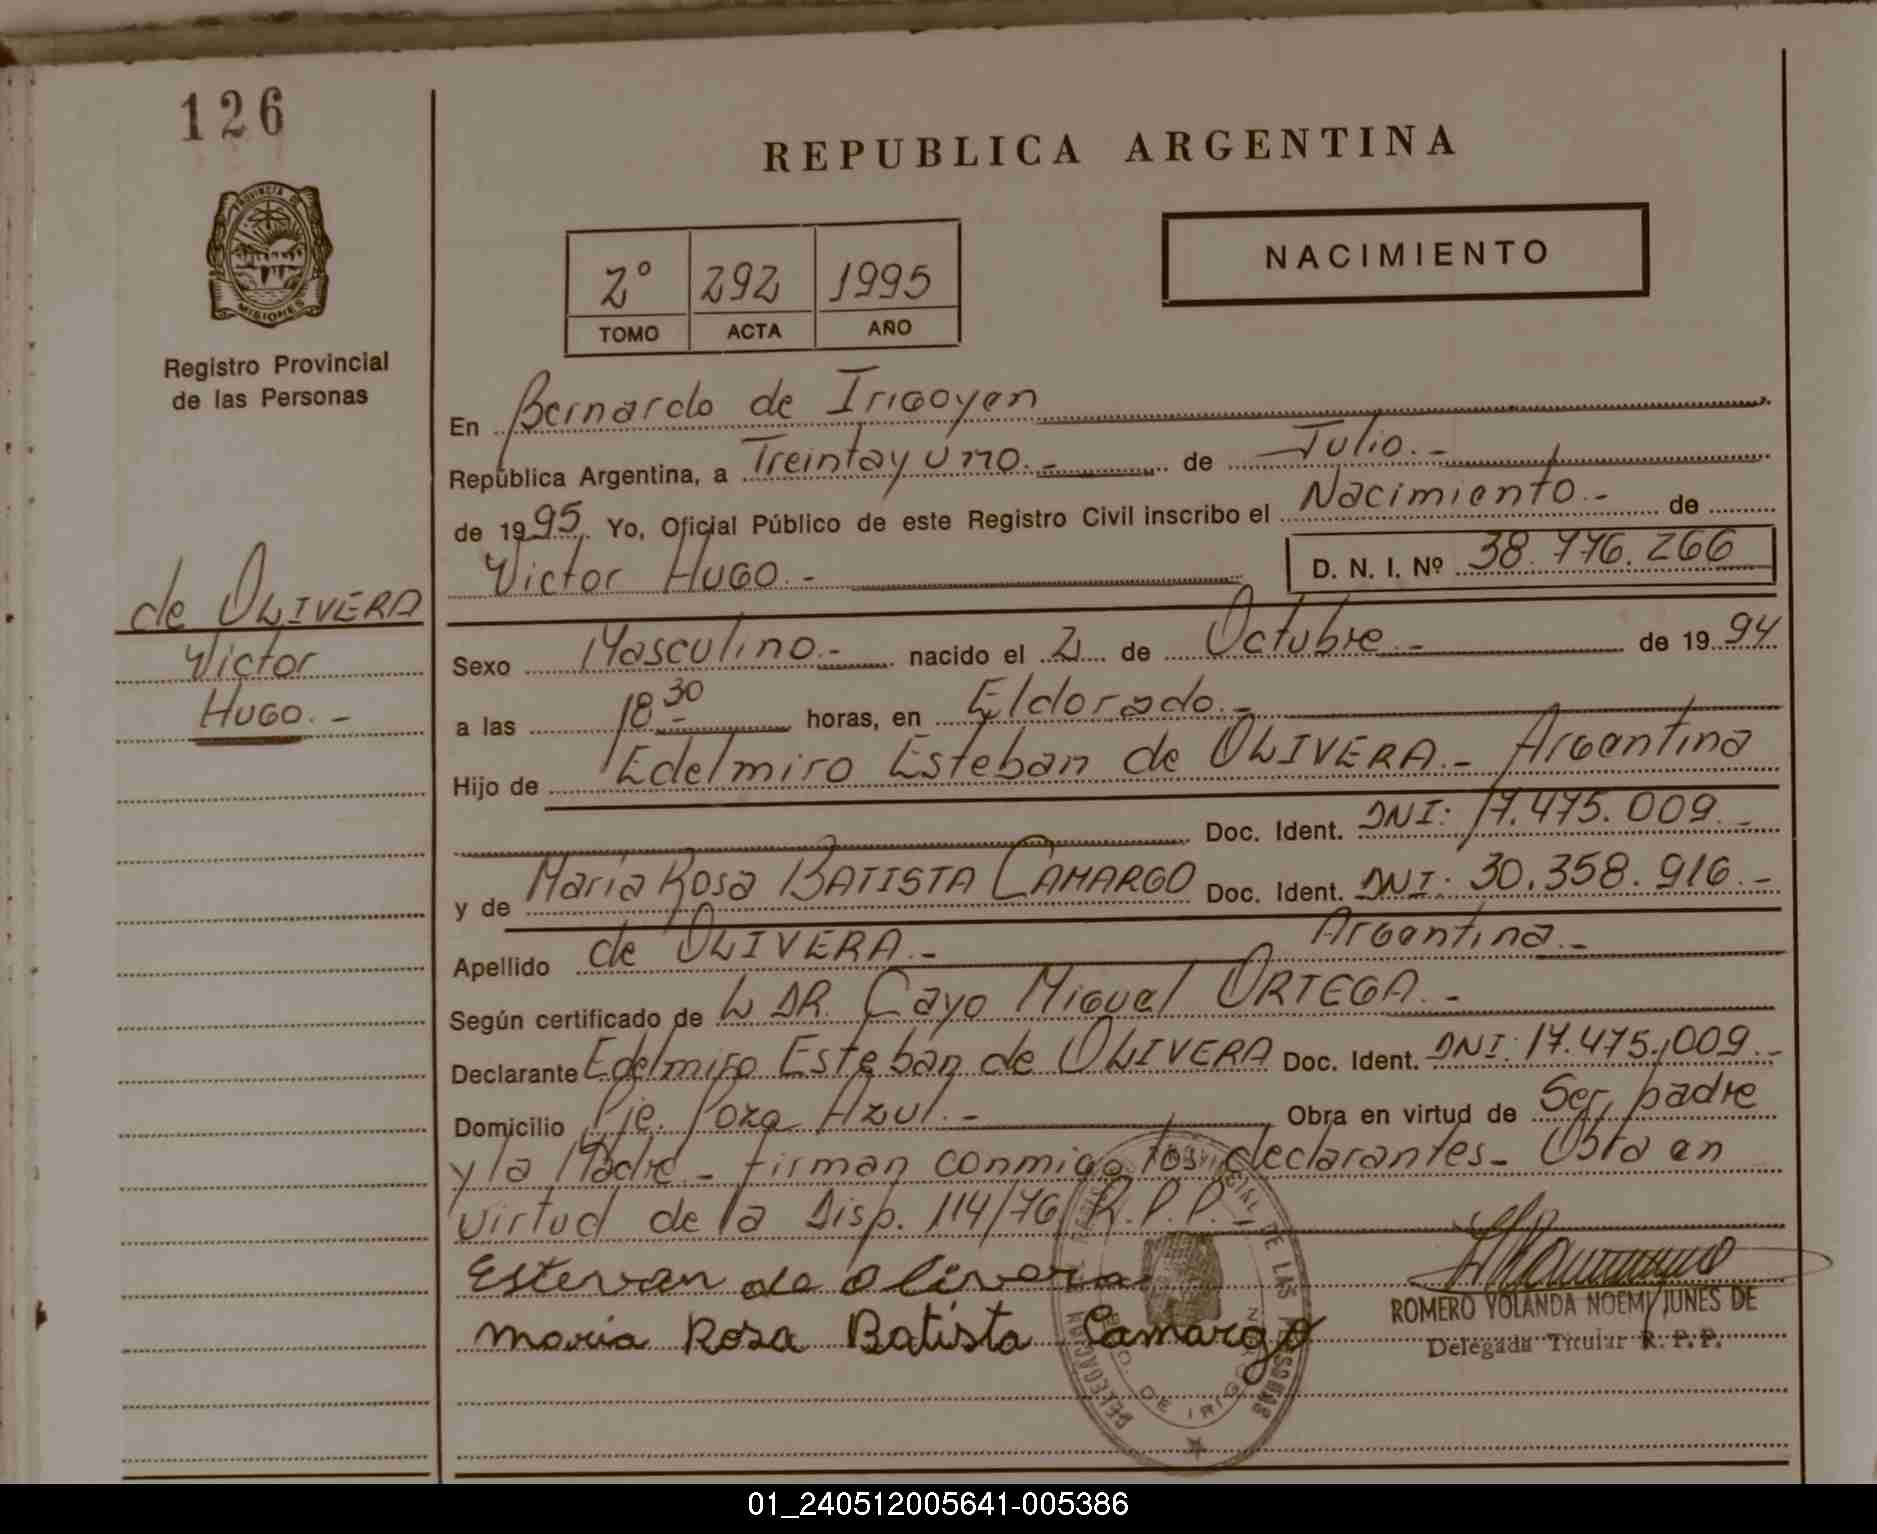 126
REPUBLICA ARGENTINA
PROVINCIA DE
MISIONES
Registro Provincial
de las Personas
NACIMIENTO
2° 292 1995
TOMO ACTA AÑO
En Bernardo de Irigoyen
República Argentina, a Treinta y uno.- de Julio.-
de 1995. Yo, Oficial Público de este Registro Civil inscribo el Nacimiento.- de
Victor HUGO.- D. N. I. Nº 38.776.266
de OLIVERA
Victor
HUGO.-
Sexo Masculino.- nacido el 21 de Octubre.- de 1994
a las 18 30 horas, en Eldorado.-
Hijo de Edelmiro Esteban de OLIVERA.- Argentina
Doc. Ident. DNI: 17.475.009.-
y de María Rosa BATISTA CAMARGO Doc. Ident. DNI: 30.358.916.-
Apellido de OLIVERA.- Argentina.-
Según certificado de L DR. Cayo Miguel ORTEGA.-
Declarante Edelmiro Esteban de OLIVERA Doc. Ident. DNI: 17.475.009.-
Domicilio Pje. Pozo Azul.- Obra en virtud de Ser padre
y la Madre.- firman conmigo los declarantes.- Obra en
virtud de la Disp. 114/76 R.P.P.-
Estevan de olivera
maria Rosa Batista Camargo
ROMERO YOLANDA NOEMI JUNES DE
Delegada Titular R. P. P.
01_240512005641-005386